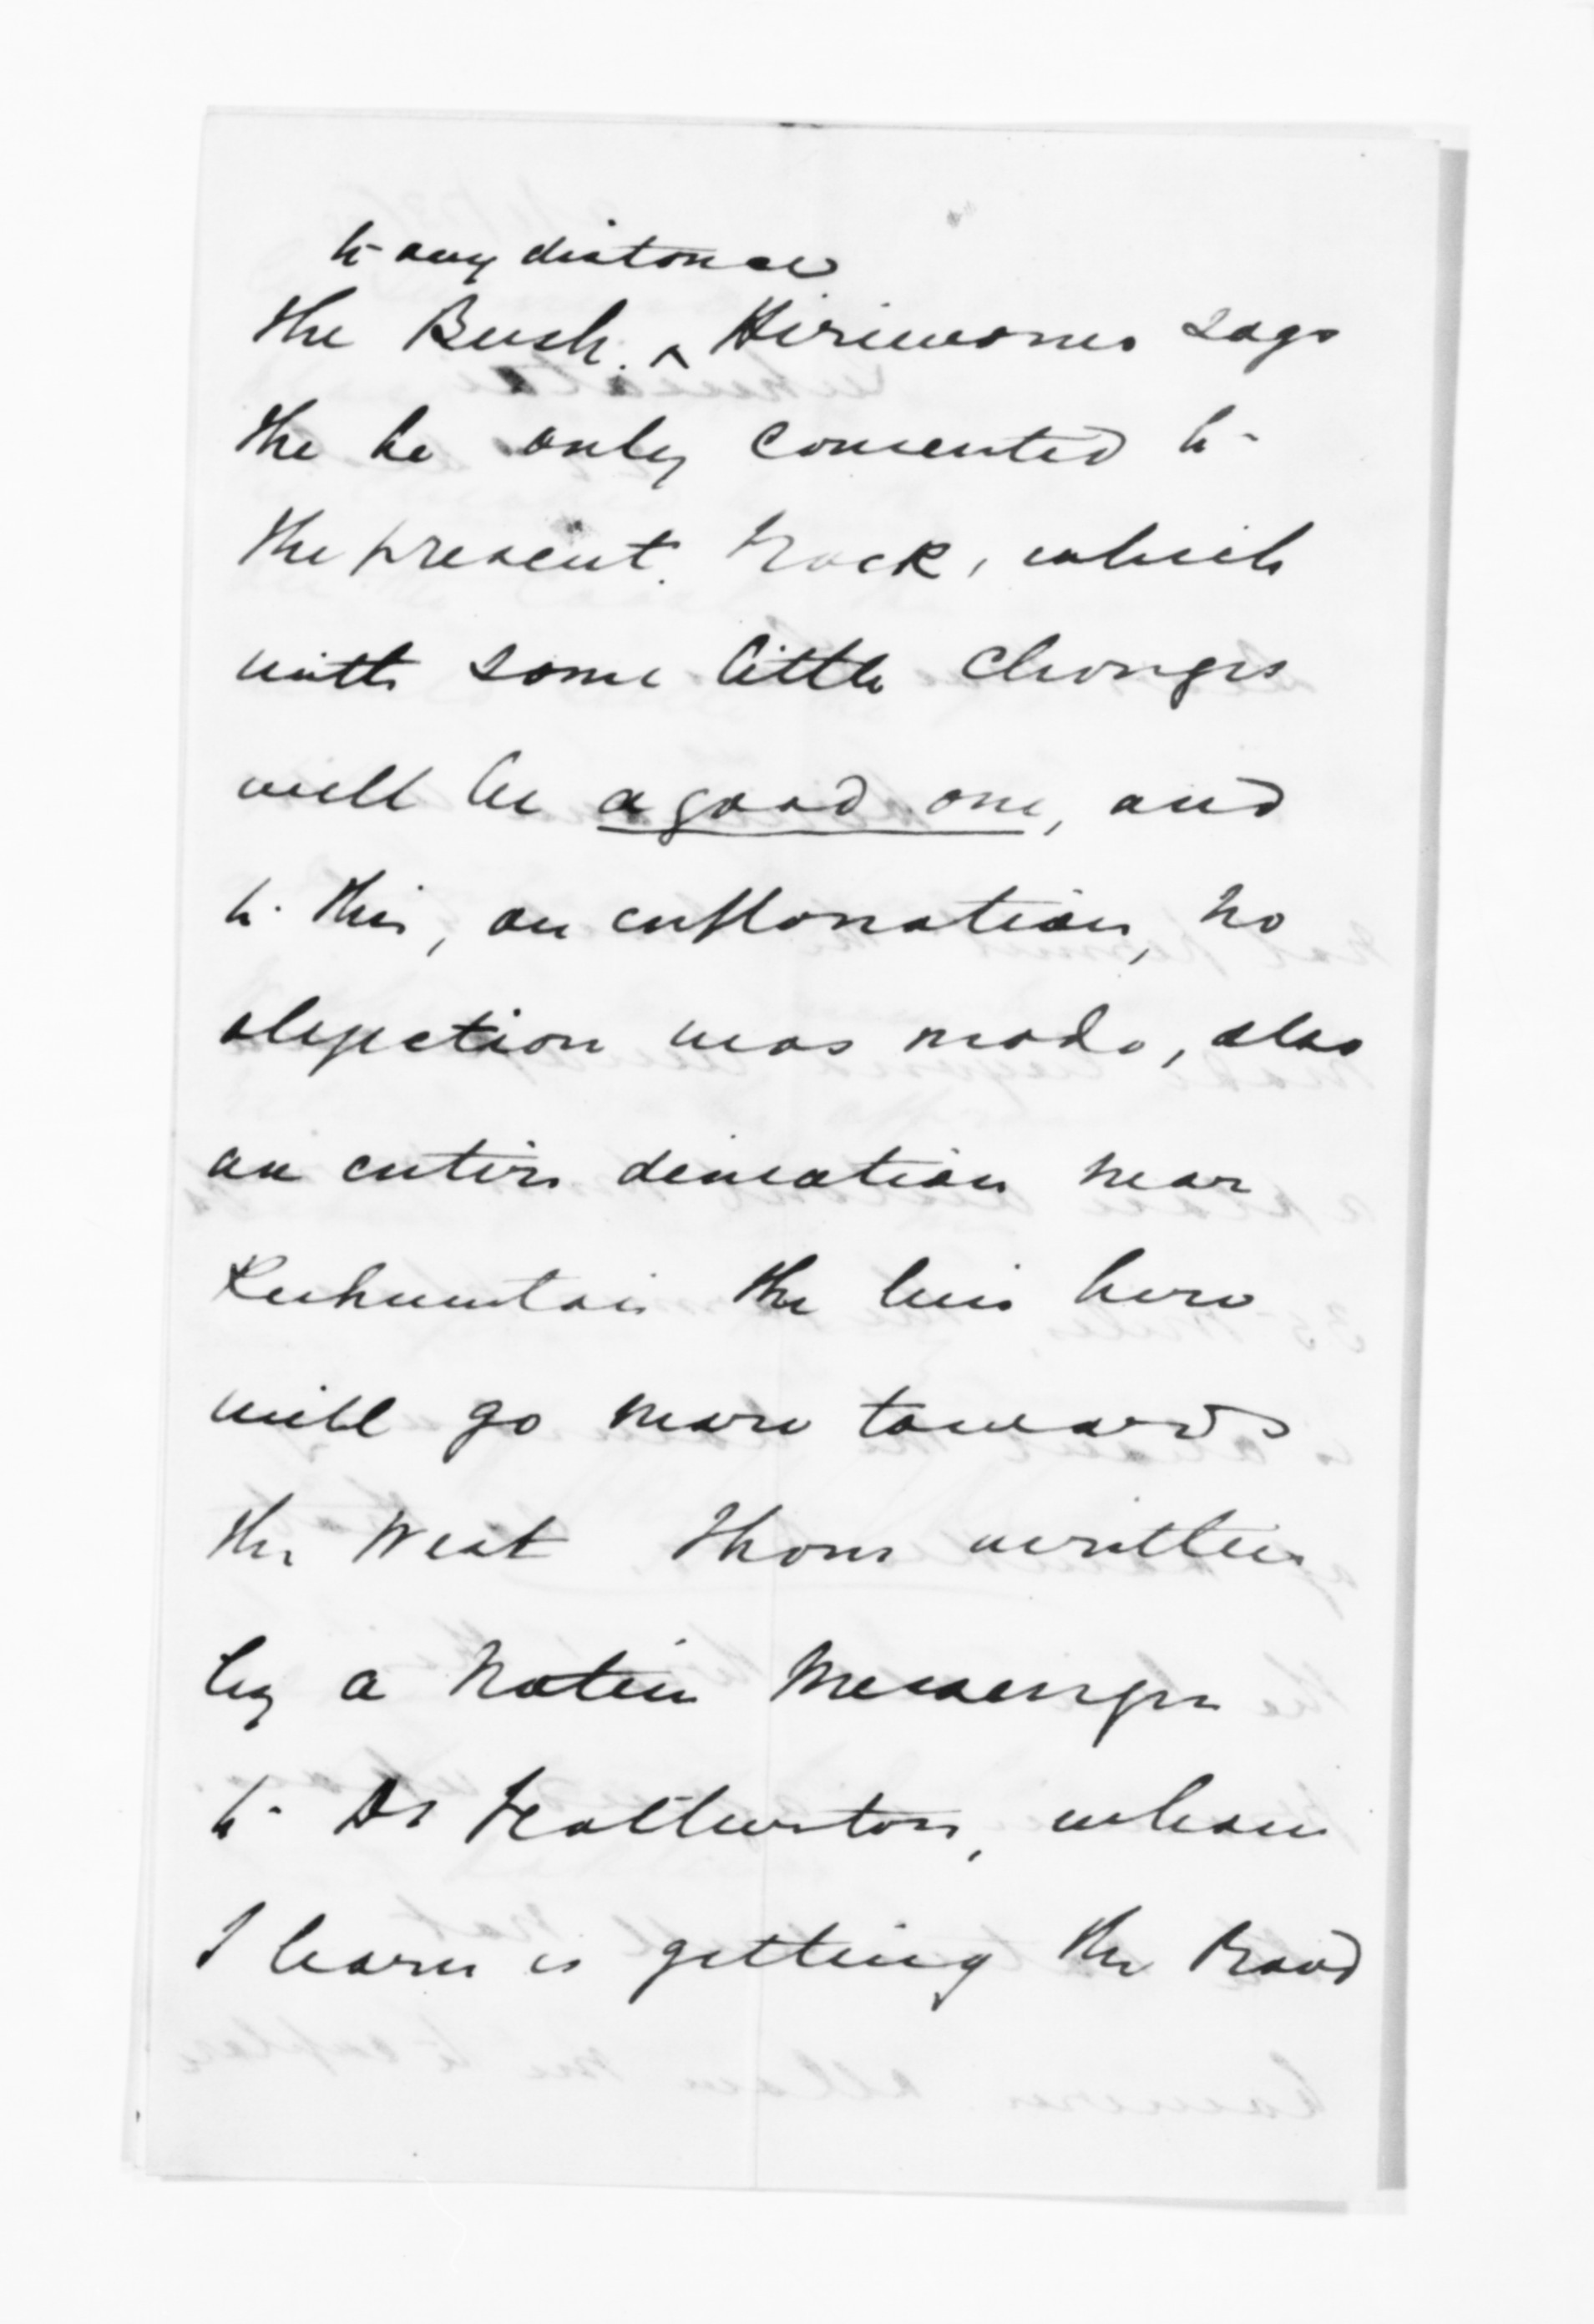 to any distance
the Bush. ^ Hiriwanu says
the he only consented to
the present track, which
with some little changes
will be a good one, and
to this, on explanation, no
objection was made, also
an entire deviation near
the line here
will go more towards
the West I have written
by a Native Messenger
to Dr Featherston, whom
I learn is getting the Road